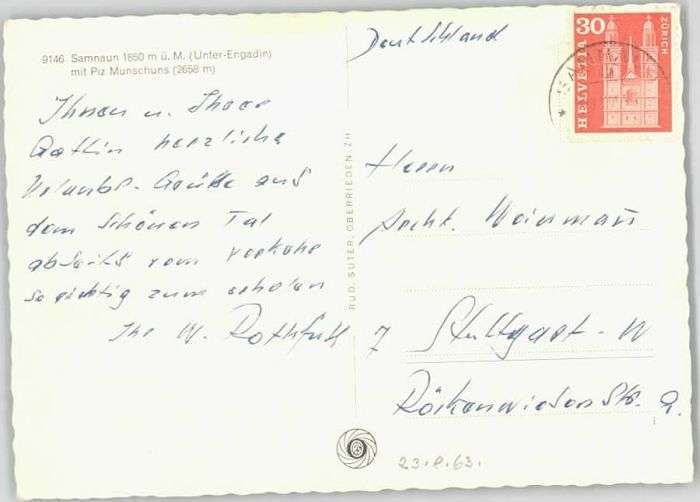 9146 Samnaun 1850 m ü. M. (Unter-Engadin)
mit Piz Munschuns (2658 m)
Ihnen u. Ihrer
Gattin herzliche
Urlaubs-Grüße aus
dem schönen Tal
abseits vom Verkehr
so richtig zum erholen
Ihr W. Rothfuß
RUD. SUTER, OBERRIEDEN, ZH
Deutschland
30
HELVETIA
ZÜRICH
Herrn
Weinmann
7 Stuttgart-W
23.8.63.